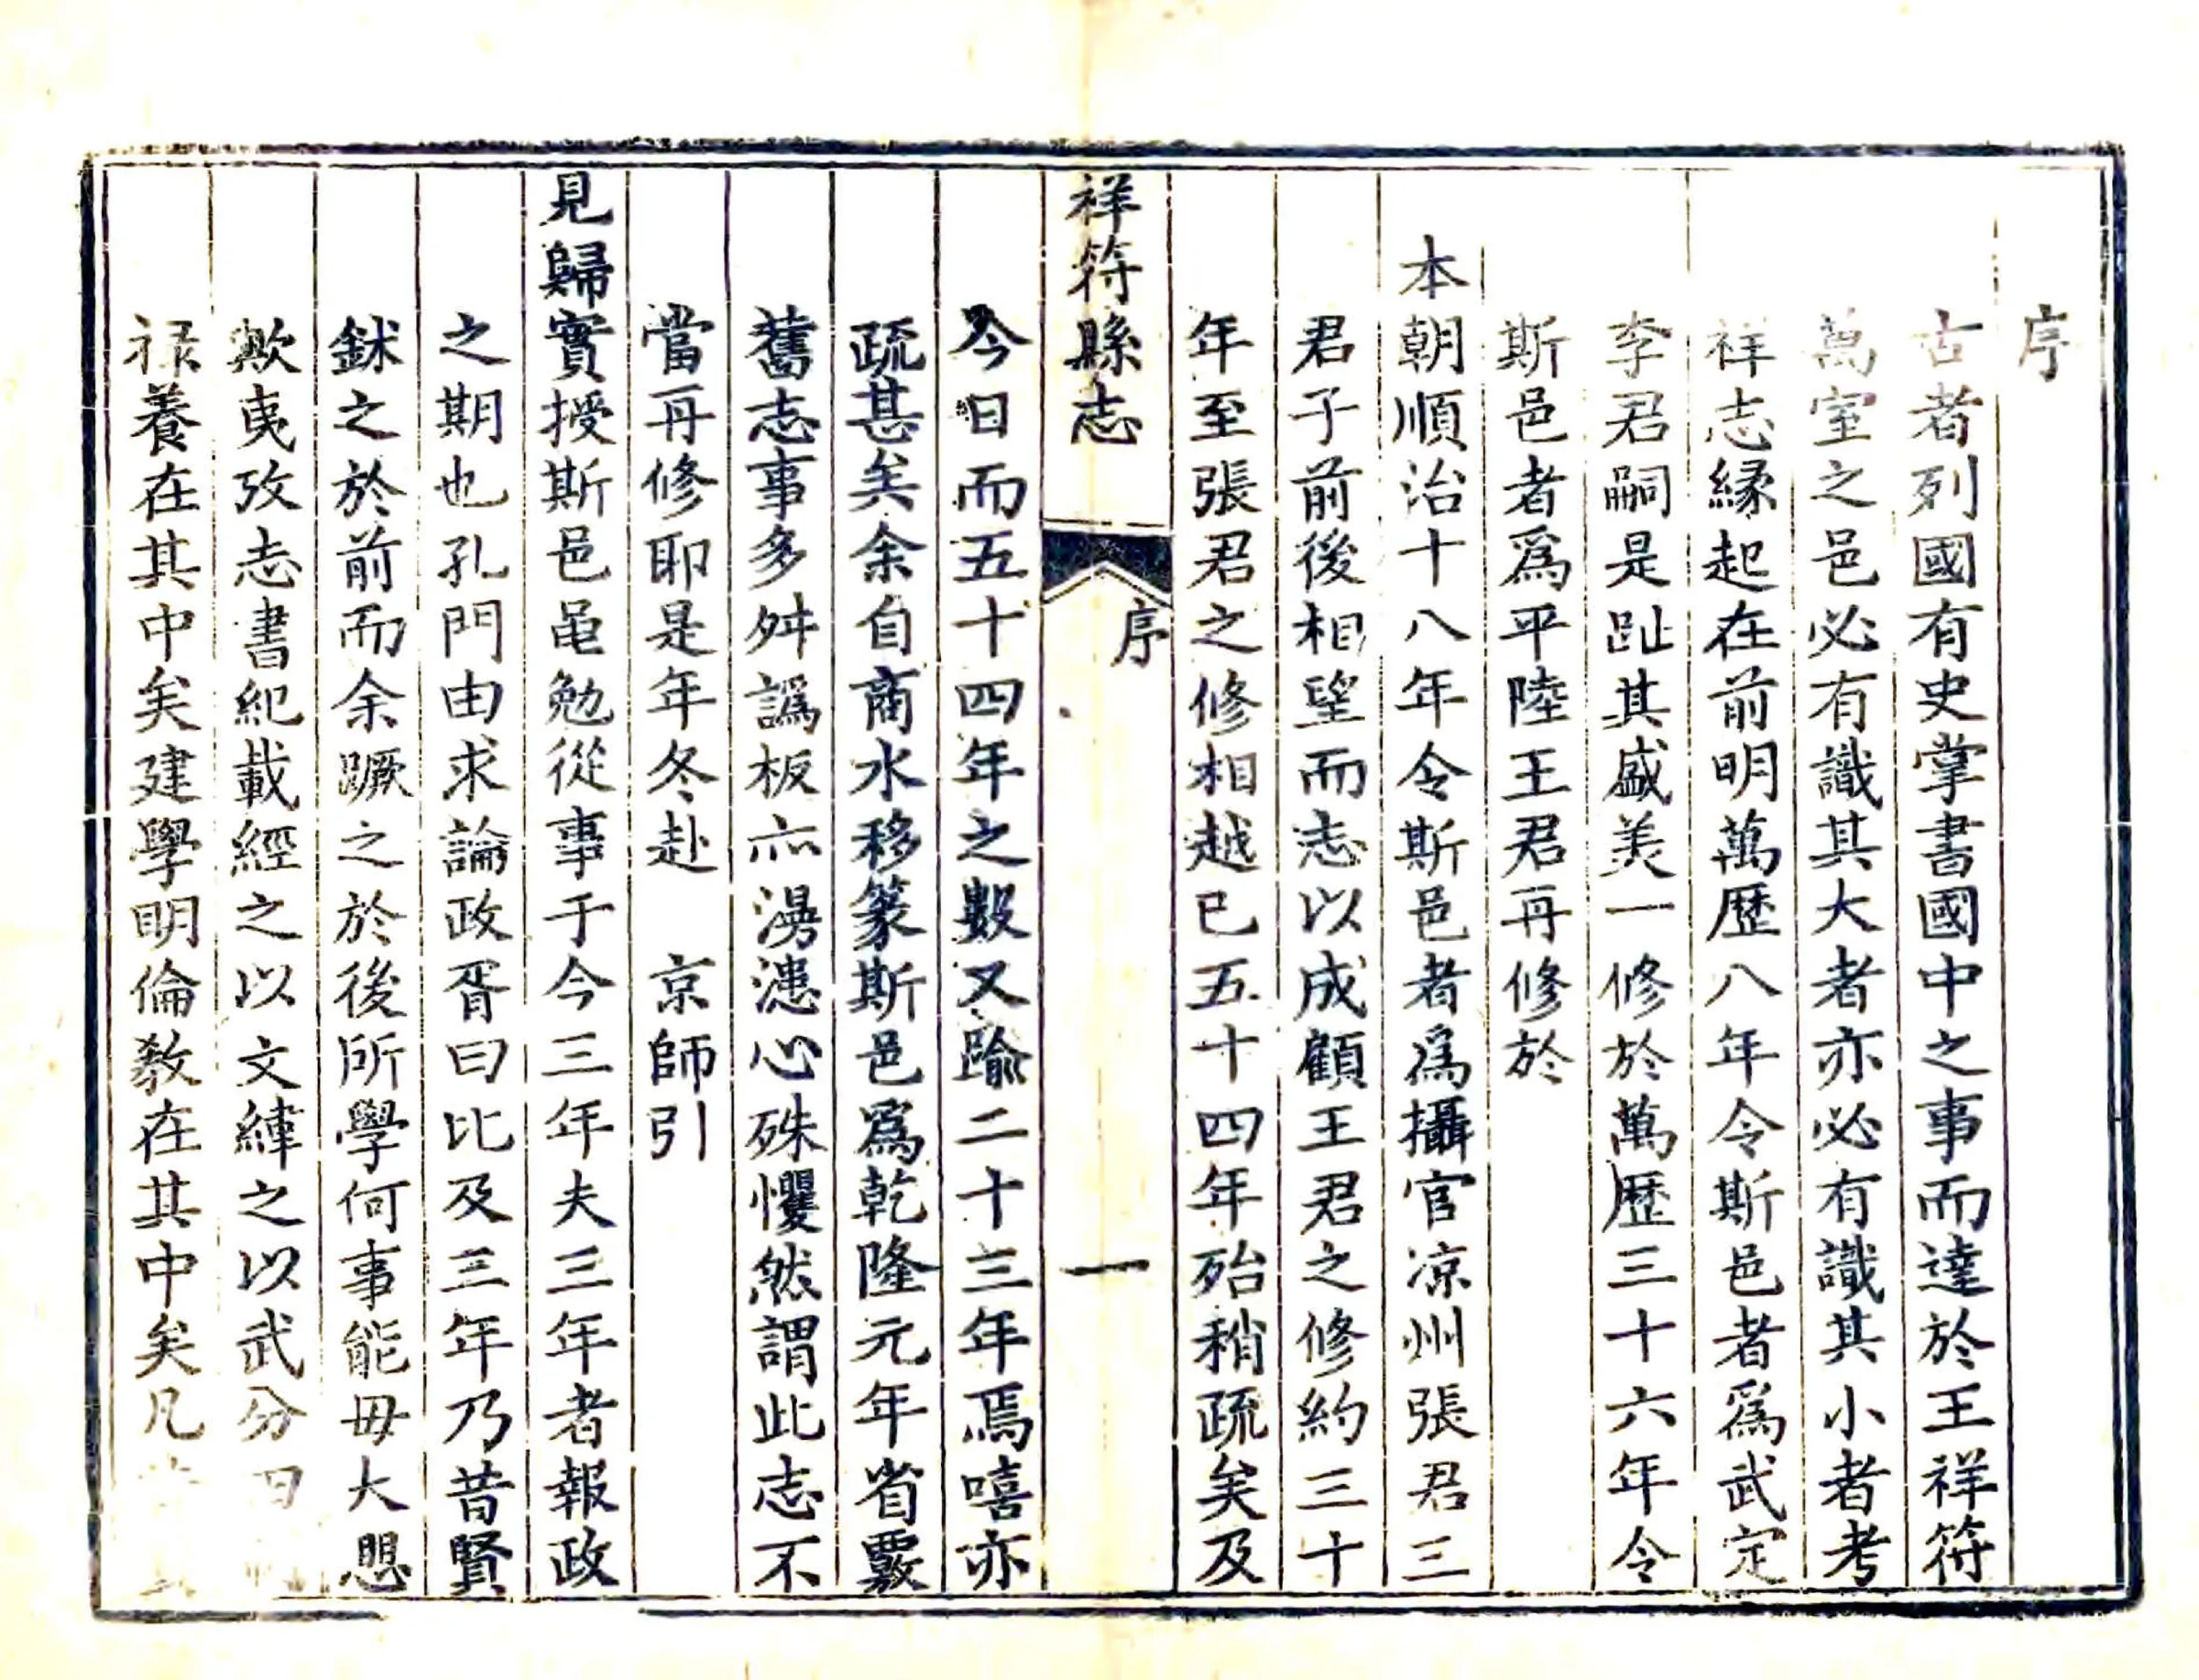 序
古者列國有史掌書國中之事而達於王祥符
萬室之邑必有識其大者亦必有識其小者考
祥志緣起在前明萬歷八年令斯邑者爲武定
李君嗣是趾其盛美一修於萬歷三十六年令
斯邑者爲平陸王君再修於
本朝順治十八年令斯邑者爲攝官凉州張君三
君子前後相望而志以成顧王君之修約三十
年至張君之修相越已五十四年殆稍疏矣及
祥符縣志
序
一
今日而五十四年之數又踰二十三年焉嘻亦
疏甚矣余自商水移篆斯邑爲乾隆元年省覈
舊志事多舛譌板亦漫漶心殊懼然謂此志不
當再修耶是年冬赴 京師引
見歸實授斯邑黽勉從事于今三年夫三年者報政
之期也孔門由求論政胥曰比及三年乃昔賢
鉥之於前而余蹶之於後所學何事能毋大恧
歟夷攷志書紀載經之以文緯之以武分曰
祿養在其中矣建學明倫敎在其中矣凡